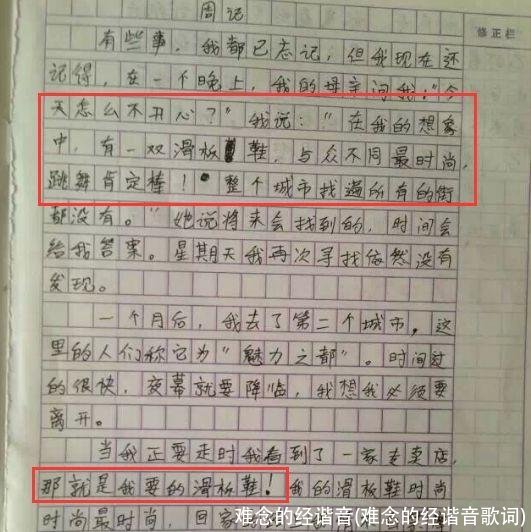 周记
修正栏
有些事，我都已忘记，但我现在还
记得，在一个晚上，我的母亲问我："今
天怎么不开心？"我说："在我的想象
中，有一双滑板鞋，与众不同最时尚，
跳舞肯定棒！"整个城市找遍所有的街
都没有。"她说将来会找到的，时间会
给我答案。星期天我再次寻找依然没有
发现。
一个月后，我去了第二个城市。这
里的人们称它为"魅力之都"。时间过
的很快，夜幕就要降临，我想我必须要
离开。
当我正要走时我看到了一家专卖店，
那就是我要的滑板鞋！我的滑板鞋时尚
时尚最时尚，回家
难念的经谐音(难念的经谐音歌词)